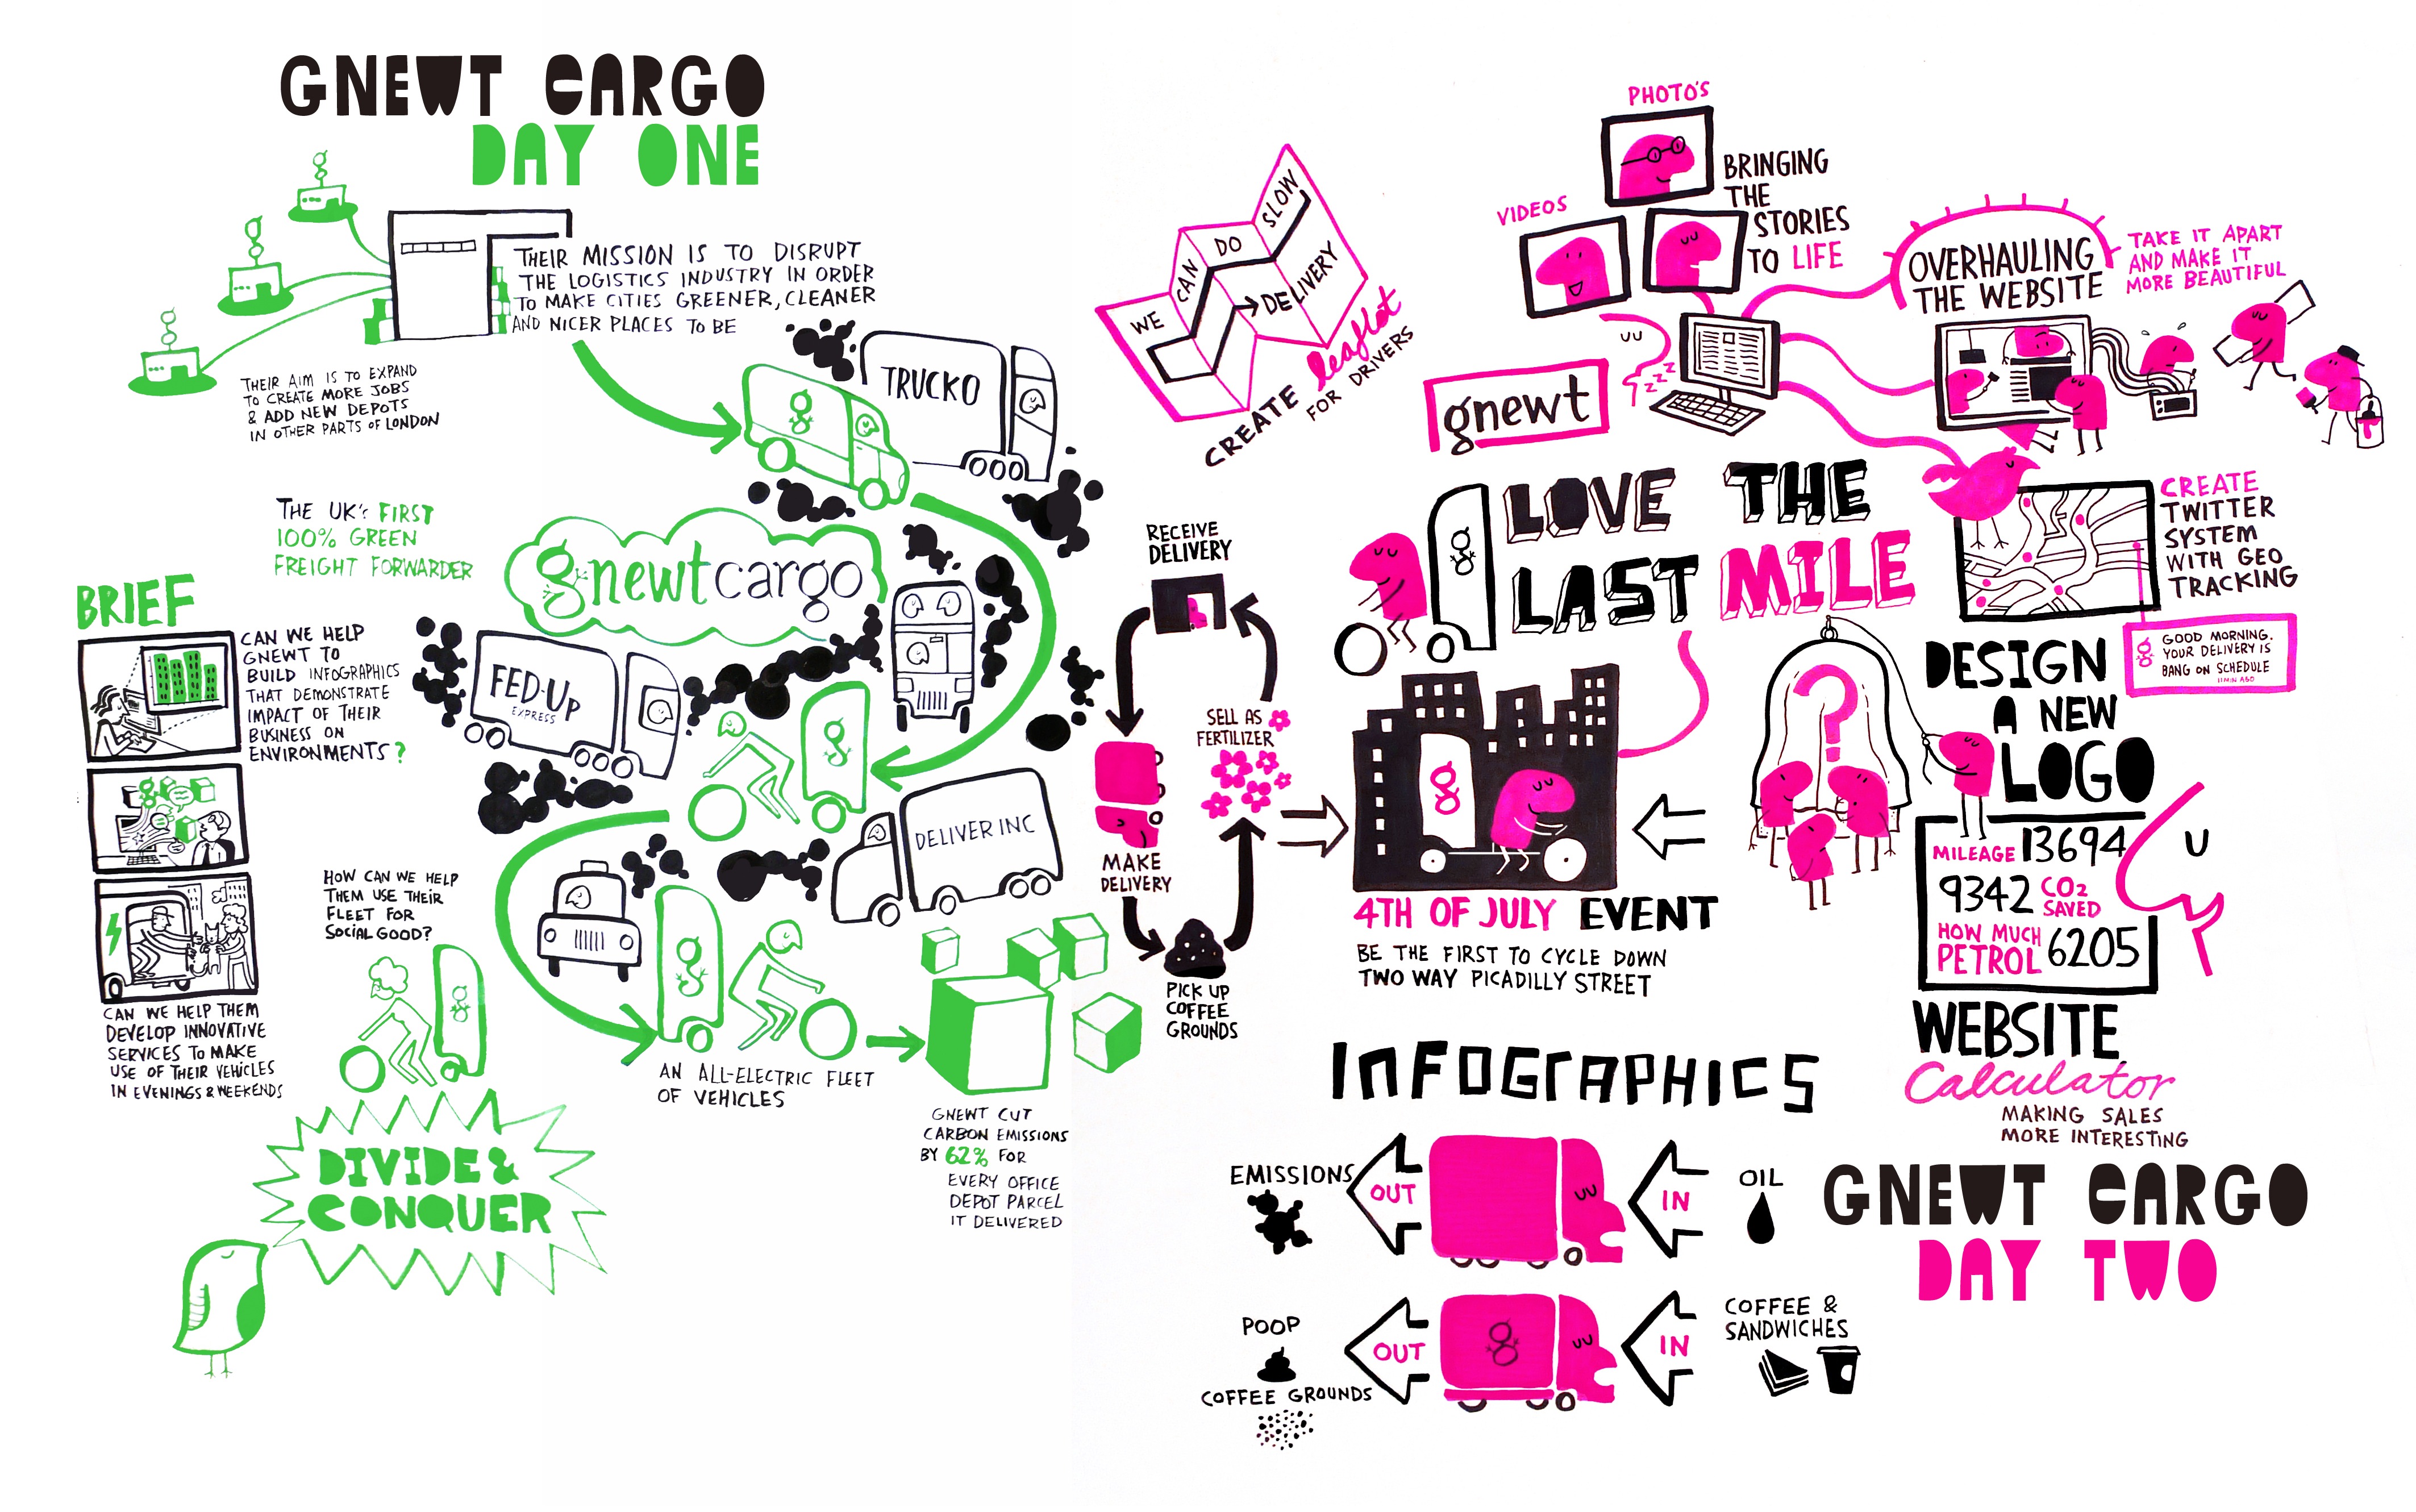 GNEWT CARGO
DAY ONE
THEIR MISSION IS TO DISRUPT
THE LOGISTICS INDUSTRY IN ORDER
TO MAKE CITIES GREENER, CLEANER
AND NICER PLACES TO BE
THEIR AIM IS TO EXPAND
TO CREATE MORE JOBS
& ADD NEW DEPOTS
IN OTHER PARTS OF LONDON
TRUCKO
THE UK'S FIRST
100% GREEN
FREIGHT FORWARDER
gnewtcargo
BRIEF
CAN WE HELP
GNEWT TO
BUILD INFOGRAPHICS
THAT DEMONSTRATE
IMPACT OF THEIR
BUSINESS ON
ENVIRONMENTS?
FED-UP
EXPRESS
DELIVER INC
HOW CAN WE HELP
THEM USE THEIR
FLEET FOR
SOCIAL GOOD?
CAN WE HELP THEM
DEVELOP INNOVATIVE
SERVICES TO MAKE
USE OF THEIR VEHICLES
IN EVENINGS & WEEKENDS
AN ALL-ELECTRIC FLEET
OF VEHICLES
GNEWT CUT
CARBON EMISSIONS
BY 62% FOR
EVERY OFFICE
DEPOT PARCEL
IT DELIVERED
DIVIDE &
CONQUER
WE CAN DO SLOW
DELIVERY
CREATE leaflet
FOR DRIVERS
PHOTO'S
VIDEOS
BRINGING
THE
STORIES
TO LIFE
OVERHAULING
THE WEBSITE
TAKE IT APART
AND MAKE IT
MORE BEAUTIFUL
zzz
gnewt
LOVE THE
LAST MILE
CREATE
TWITTER
SYSTEM
WITH GEO
TRACKING
GOOD MORNING.
YOUR DELIVERY IS
BANG ON SCHEDULE
11 MIN AGO
RECEIVE
DELIVERY
SELL AS
FERTILIZER
MAKE
DELIVERY
PICK UP
COFFEE
GROUNDS
4TH OF JULY EVENT
BE THE FIRST TO CYCLE DOWN
TWO WAY PICADILLY STREET
?
DESIGN
A NEW
LOGO
MILEAGE 13694
9342 CO2
SAVED
HOW MUCH
PETROL 6205
WEBSITE
Calculator
MAKING SALES
MORE INTERESTING
INFOGRAPHICS
EMISSIONS
OUT
IN
OIL
POOP
COFFEE GROUNDS
OUT
IN
COFFEE &
SANDWICHES
GNEWT CARGO
DAY TWO